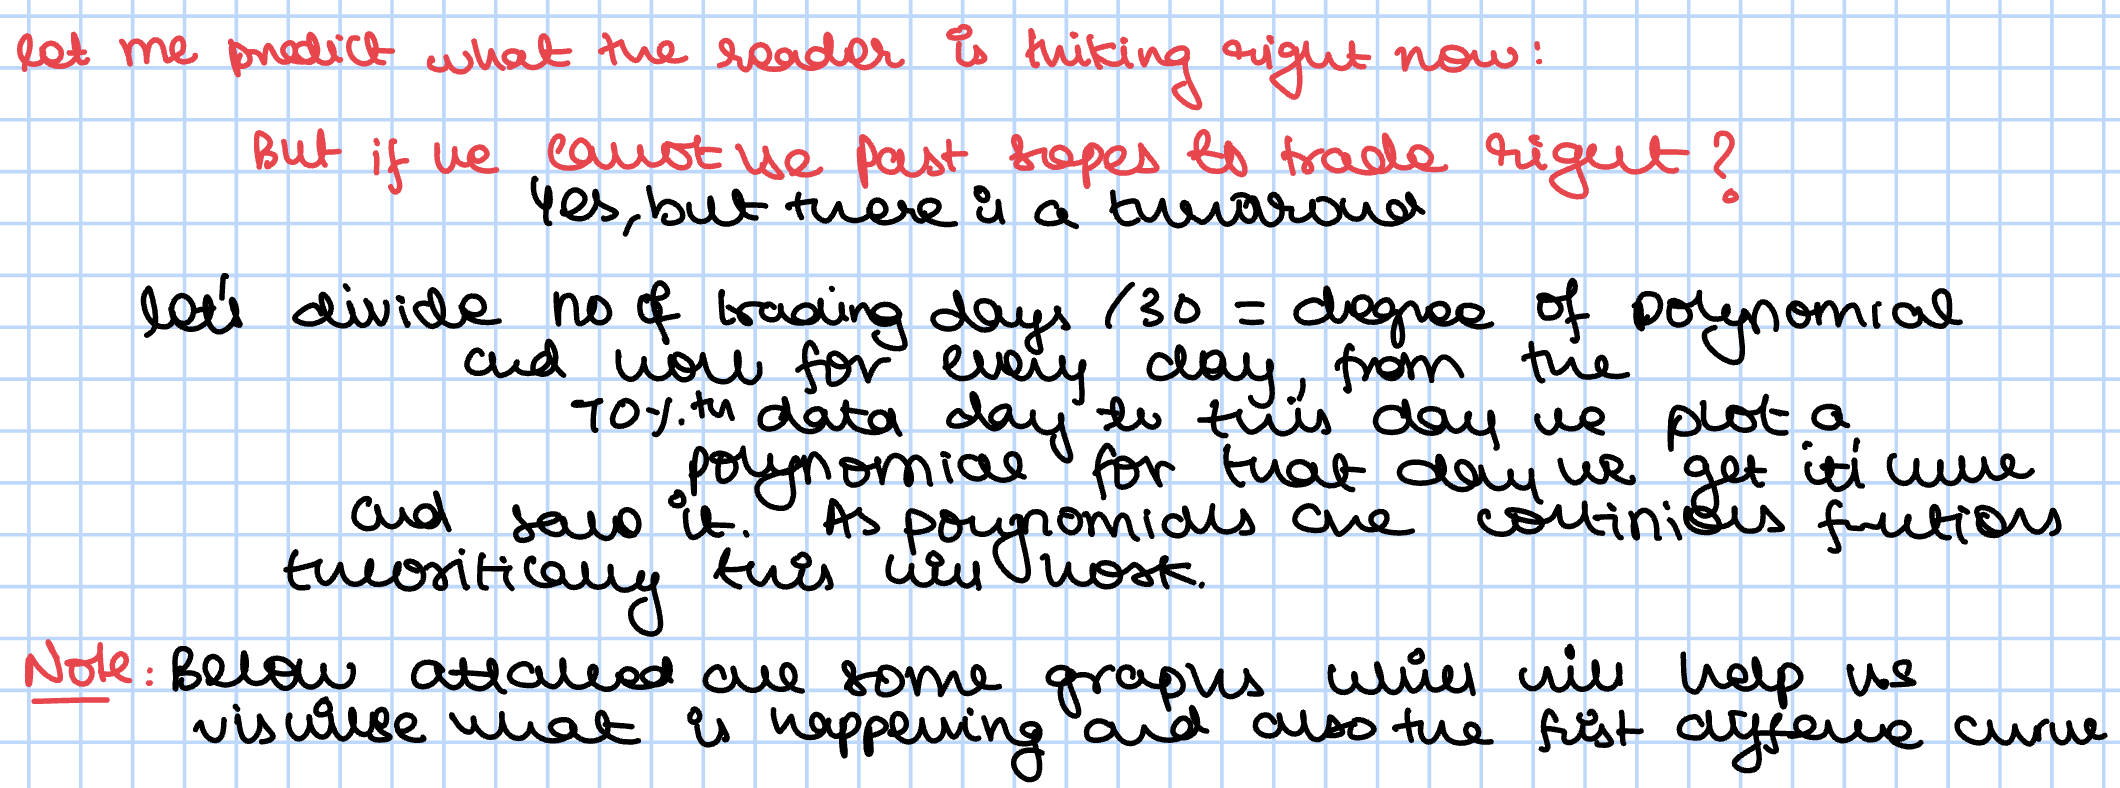 let me predict what the reader is thiking right now:
But if we cannot use past slopes to trade right?
Yes, but there is a turnaround
let's divide no of trading days /30 = degree of polynomial
and now for every day, from the
70%th data day to this day we plot a
polynomial for that day we get it's curve
and save it. As polynomials are continious functions
theoritically this will work.
Note: Below attached are some graphs which will help us
visulise what is happening and also the first differene curve